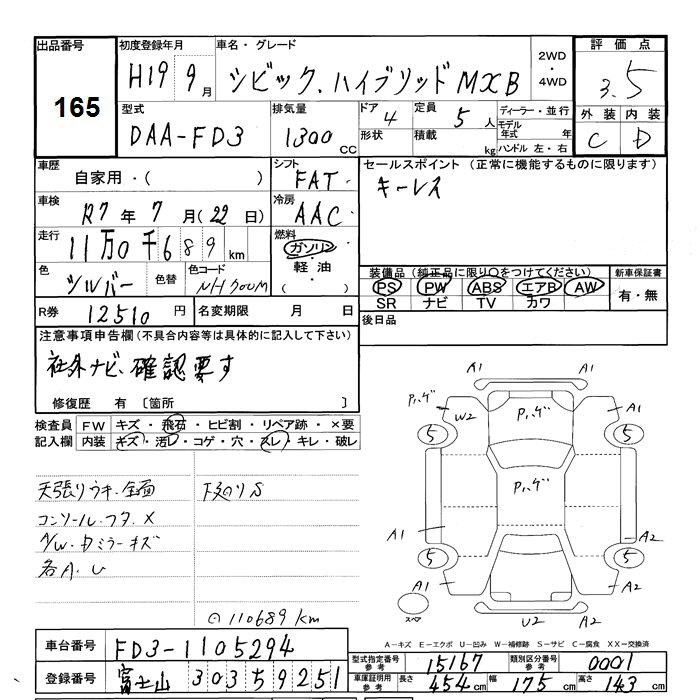 出品番号 初度登録年月 車名・グレード 2WD・4WD 評価点
165 H19 9月 シビック.ハイブリッド MXB 3.5
型式 排気量 ドア 4 定員 5人 ディーラー・並行 外装 内装
DAA-FD3 1300cc 形状 積載 kg モデル年式 年 C D
ハンドル 左・右
車歴 自家用・( ) シフト FAT セールスポイント (正常に機能するものに限ります)
車検 R7年7月(22日) 冷房 AAC キーレス
走行 11万0千689km 燃料 ガソリン・軽油・( )
色 シルバー 色替 色コード NH700M
装備品(純正品に限り○をつけてください) 新車保証書
PS PW ABS エアB AW 有・無
SR ナビ TV カワ
R券 12510円 名変期限 月 日 後日品
注意事項申告欄(不具合内容等は具体的に記入して下さい)
社外ナビ.確認要す
修復歴 有〔箇所 〕
検査員記入欄 FW キズ・飛石・ヒビ割・リペア跡・×要
内装 キズ・汚レ・コゲ・穴・スレ・キレ・破レ
天張りウキ.全面
コンソール.フタ.×
A/W.Dミラーキズ
各A.U
⊙110689km
A1 A1
Pハゲ W2 Pハゲ A1
5 5
Pハゲ
A1 A2
5 5
A1 A2
スペア U2 A2
A-キズ E-エクボ U-凹み W-補修跡 S-サビ C-腐食 XX-交換済
車台番号 FD3-1105294
型式指定番号 参考 15167 類別区分番号 参考 0001
登録番号 富士山 303 5 9251
車庫証明用 参考 長さ 454cm 幅 175cm 高さ 143cm